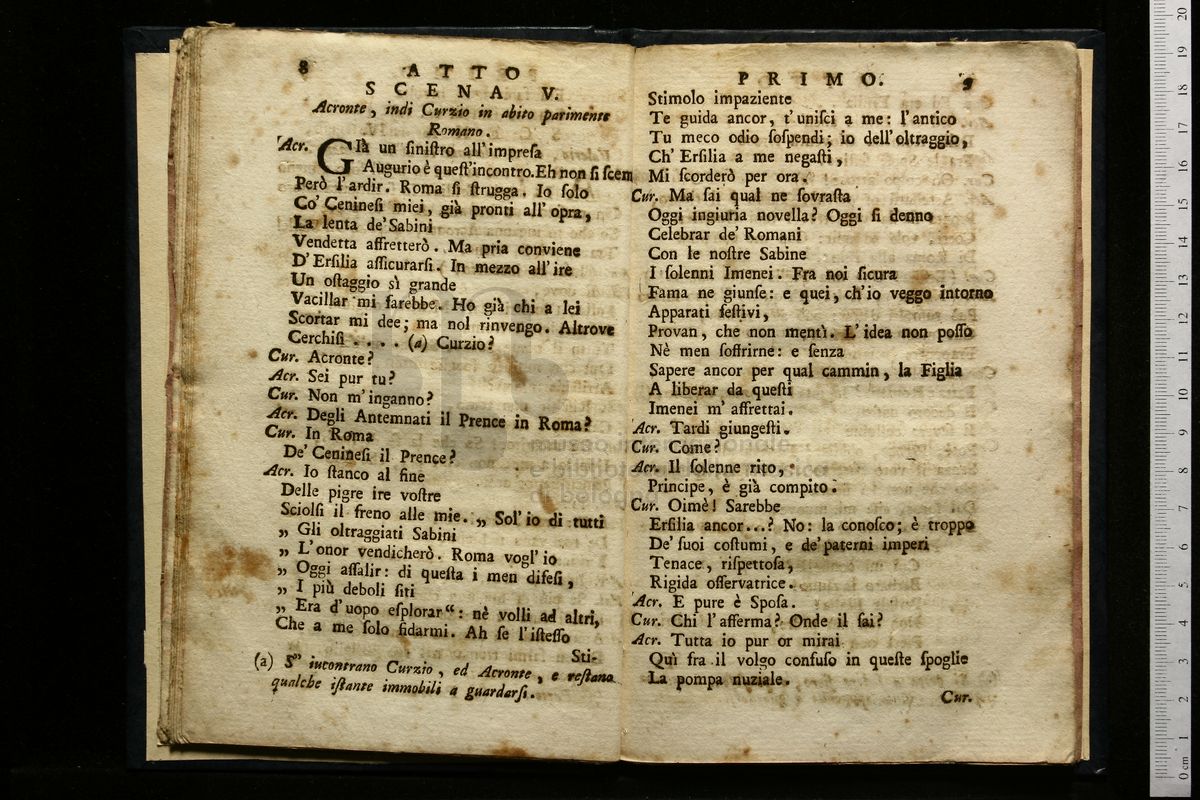 8
ATTO
SCENA V.
Acronte, indi Curzio in abito parimente
Romano.
Acr. Già un ſiniſtro all'impreſa
Augurio è queſt'incontro. Eh non ſi ſcem
Però l'ardir. Roma ſi ſtrugga. Io ſolo
Co' Cenineſi miei, già pronti all'opra,
La lenta de' Sabini
Vendetta affretterò. Ma pria conviene
D'Erſilia aſſicurarſi. In mezzo all'ire
Un oſtaggio sì grande
Vacillar mi farebbe. Ho già chi a lei
Scortar mi dee; ma nol rinvengo. Altrove
Cerchiſi .... (a) Curzio?
Cur. Acronte?
Acr. Sei pur tu?
Cur. Non m'inganno?
Acr. Degli Antemnati il Prence in Roma?
Cur. In Roma
De' Cenineſi il Prence?
Acr. Io ſtanco al fine
Delle pigre ire voſtre
Sciolſi il freno alle mie. „ Sol' io di tutti
„ Gli oltraggiati Sabini
„ L'onor vendicherò. Roma vogl' io
„ Oggi aſſalir: di queſta i men difeſi,
„ I più deboli ſiti
„ Era d'uopo eſplorar“: nè volli ad altri,
Che a me ſolo fidarmi. Ah ſe l'iſteſſo
Sti-
(a) S' iucontrano Curzio, ed Acronte, e reſtano
qualche iſtante immobili a guardarſi.
PRIMO. 9
Stimolo impaziente
Te guida ancor, t'uniſci a me: l'antico
Tu meco odio ſoſpendi; io dell'oltraggio,
Ch' Erſilia a me negaſti,
Mi ſcorderò per ora.
Cur. Ma ſai qual ne ſovraſta
Oggi ingiuria novella? Oggi ſi denno
Celebrar de' Romani
Con le noſtre Sabine
I ſolenni Imenei. Fra noi ſicura
Fama ne giunſe: e quei, ch'io veggo intorno
Apparati feſtivi,
Provan, che non mentì. L'idea non poſſo
Nè men ſoffrirne: e ſenza
Sapere ancor per qual cammin, la Figlia
A liberar da queſti
Imenei m' affrettai.
Acr. Tardi giungeſti.
Cur. Come?
Acr. Il ſolenne rito,
Principe, è già compito.
Cur. Oimè! Sarebbe
Erſilia ancor...? No: la conoſco; è troppo
De' ſuoi coſtumi, e de' paterni imperi
Tenace, riſpettoſa,
Rigida oſſervatrice.
Acr. E pure è Spoſa.
Cur. Chi l'afferma? Onde il ſai?
Acr. Tutta io pur or mirai
Quì fra il volgo confuſo in queſte ſpoglie
La pompa nuziale.
Cur.
0 cm 1 2 3 4 5 6 7 8 9 10 11 12 13 14 15 16 17 18 19 20